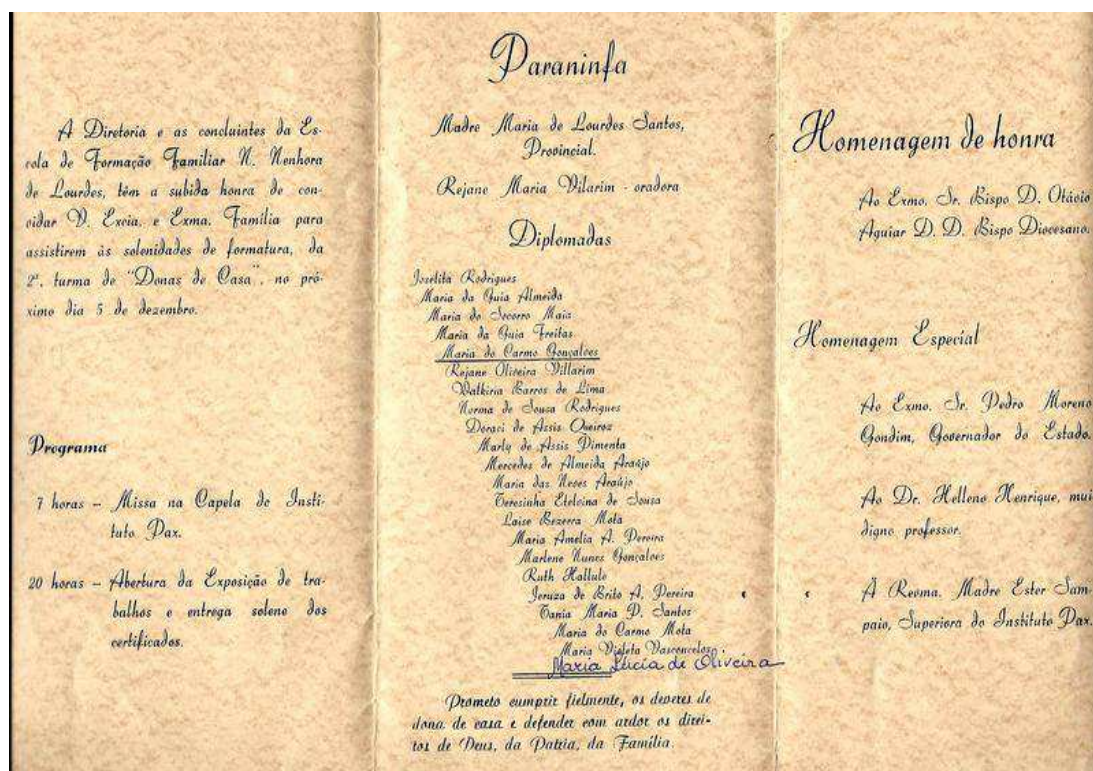 A Diretoria e as concluintes da Es-
cola de Formação Familiar N. Nenhora
de Lourdes, têm a subida honra de con-
vidar V. Excia. e Exma. Família para
assistirem às solenidades de formatura, da
2ª. turma de "Donas de Casa", no pró-
ximo dia 5 de dezembro.
Programa
7 horas – Missa na Capela do Insti-
tuto Pax.
20 horas – Abertura da Exposição de tra-
balhos e entrega solene dos
certificados.
Paraninfa
Madre Maria de Lourdes Santos,
Provincial.
Rejane Maria Vilarim - oradora
Diplomadas
Joselita Rodrigues
Maria da Guia Almeida
Maria do Socorro Maia
Maria da Guia Freitas
Maria do Carmo Gonçalves
Rejane Oliveira Villarim
Walkiria Barros de Lima
Norma de Sousa Rodrigues
Doraci de Assis Queiroz
Marly de Assis Pimenta
Mercedes de Almeida Araújo
Maria das Neves Araújo
Teresinha Etelvina de Sousa
Laise Bezerra Mota
Maria Amelia A. Pereira
Marlene Nunes Gonçalves
Ruth Hallule
Jeruza de Brito A. Pereira
Tania Maria P. Santos
Maria do Carmo Mota
Maria Violeta Vasconcelos.
Maria Lúcia de Oliveira
Prometo cumprir fielmente, os deveres de
dona de casa e defender com ardor os direi-
tos de Deus, da Patria, da Família.
Homenagem de honra
Ao Exmo. Sr. Bispo D. Otávio
Aguiar D. D. Bispo Diocesano.
Homenagem Especial
Ao Exmo. Sr. Pedro Moreno
Gondim, Governador do Estado.
Ao Dr. Helleno Henrique, mui
digno professor.
Ä Revma. Madre Ester Sam-
paio, Superiora do Instituto Pax.